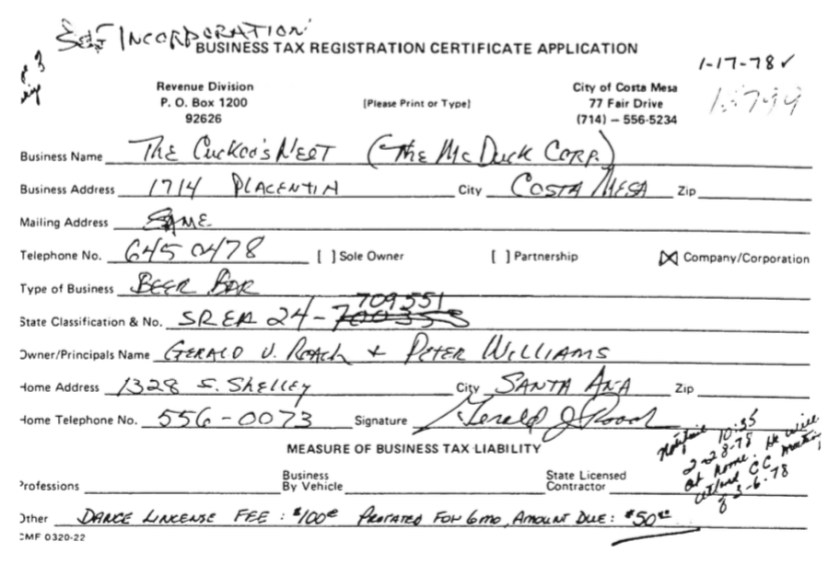 INCORPORATION
BUSINESS TAX REGISTRATION CERTIFICATE APPLICATION
1-17-78 ✓
Revenue Division
P. O. Box 1200
92626
(Please Print or Type)
City of Costa Mesa
77 Fair Drive
(714) — 556-5234
Business Name THE CUCKOO'S NEST (THE McDUCK CORP.)
Business Address 1714 PLACENTIA City COSTA MESA Zip
Mailing Address SAME
Telephone No. 645 0478 [ ] Sole Owner [ ] Partnership [X] Company/Corporation
Type of Business BEER BAR
709551
State Classification & No. SREA 24-
Owner/Principals Name GERALD J. ROACH + PETER WILLIAMS
Home Address 1328 S. SHELLEY City SANTA ANA Zip
Home Telephone No. 556-0073 Signature Gerald J Roach
MEASURE OF BUSINESS TAX LIABILITY
10:35
2-28-78
at home. He will
attend CC meeting
3-6-78
Professions Business By Vehicle State Licensed Contractor
Other DANCE LINCENSE FEE : $100 PRORATED FOR 6 mo, AMOUNT DUE: $50
CMF 0320-22